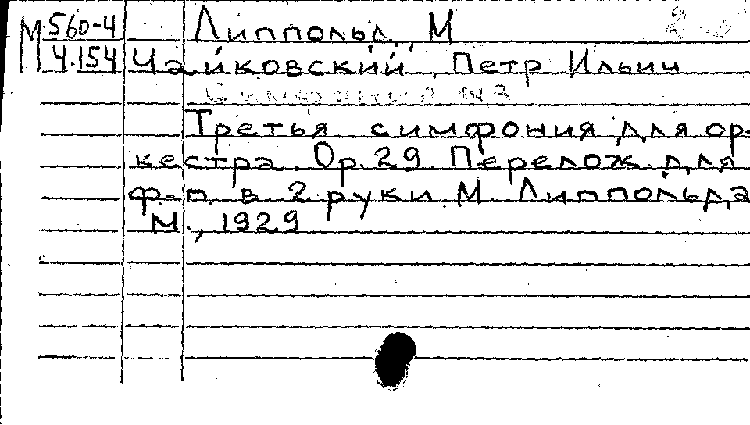 М 560-4 Липпольд, М
4.154 Чайковский, Петр Ильич
Симфония № 3
Третья симфония для ор-
кестра. Op. 29. Перелож. для
ф-п. в 2 руки М. Липпольда
М., 1929